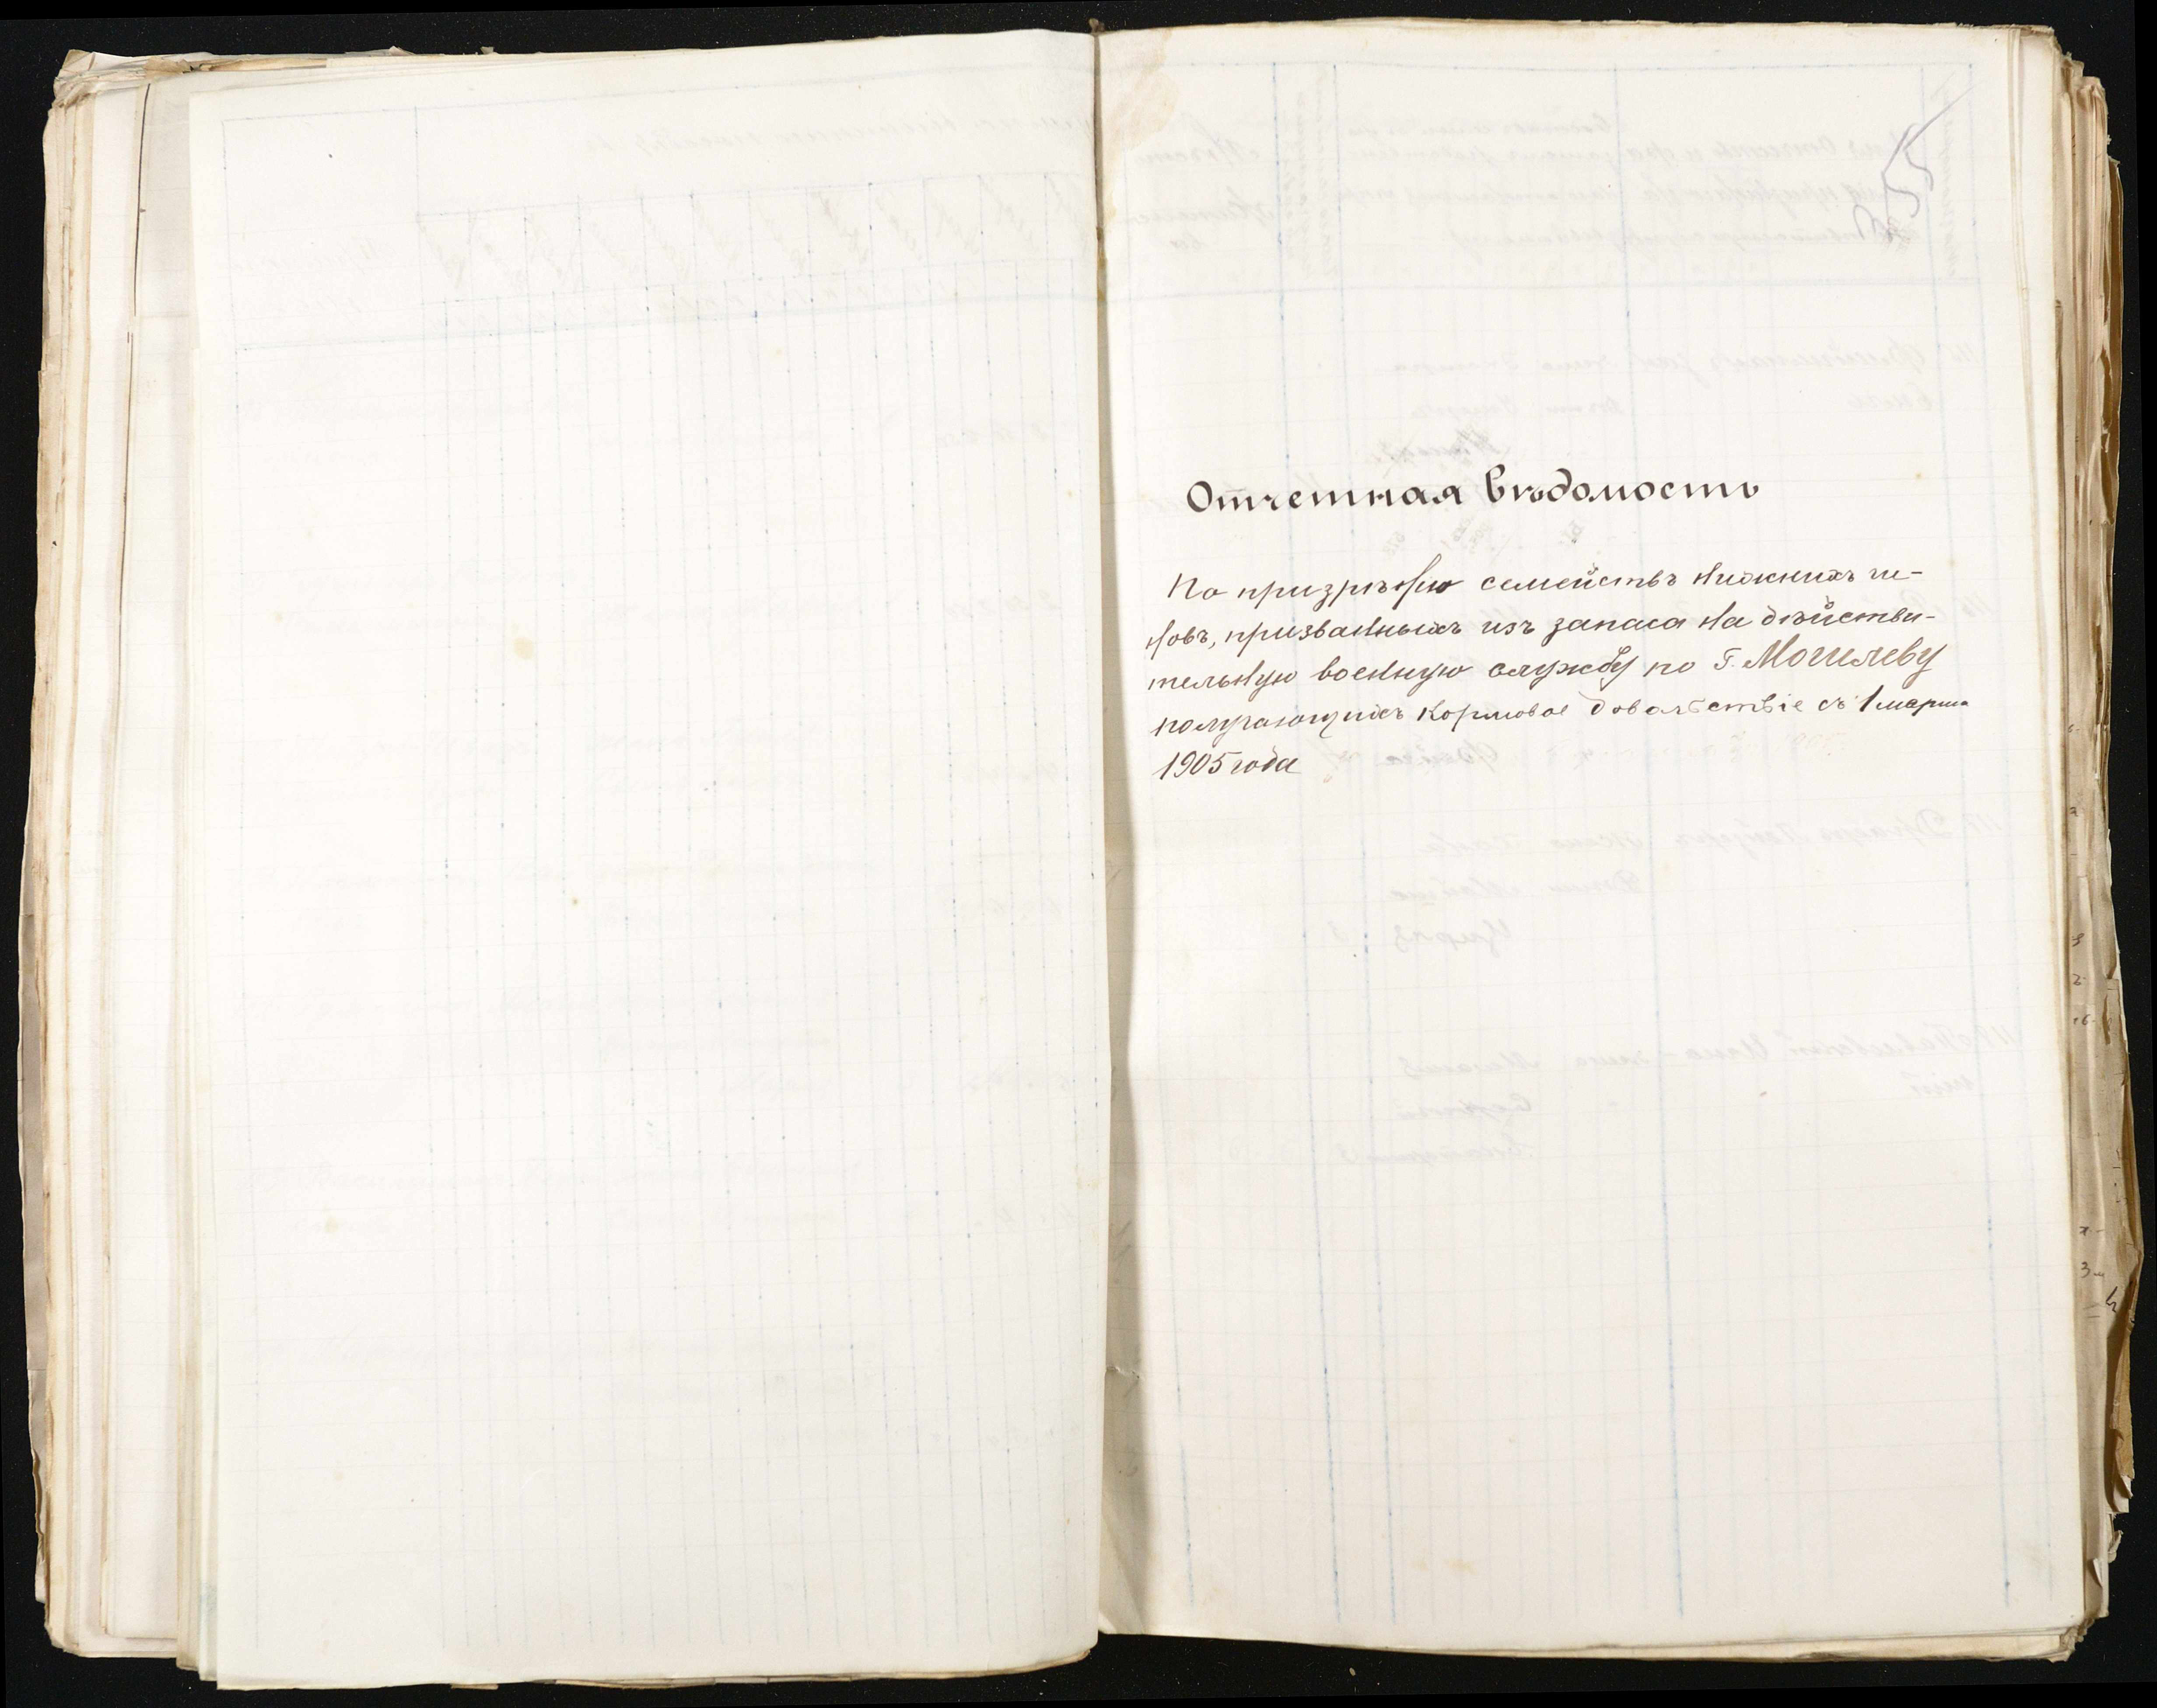 55
Отчетная Вѣдомость
По призрѣнію семействъ нижнихъ чи-
новъ, призванныхъ изъ запаса на дѣйстви-
тельную военную службу по Г. Могилеву
получающихъ кормовое довольствіе съ 1 марта
1905 года